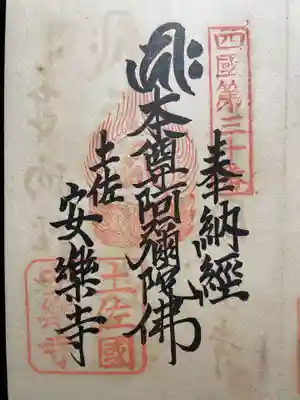 四國第三十番
奉納經
本尊阿彌陀佛
土佐
安樂寺
土佐國
安樂寺